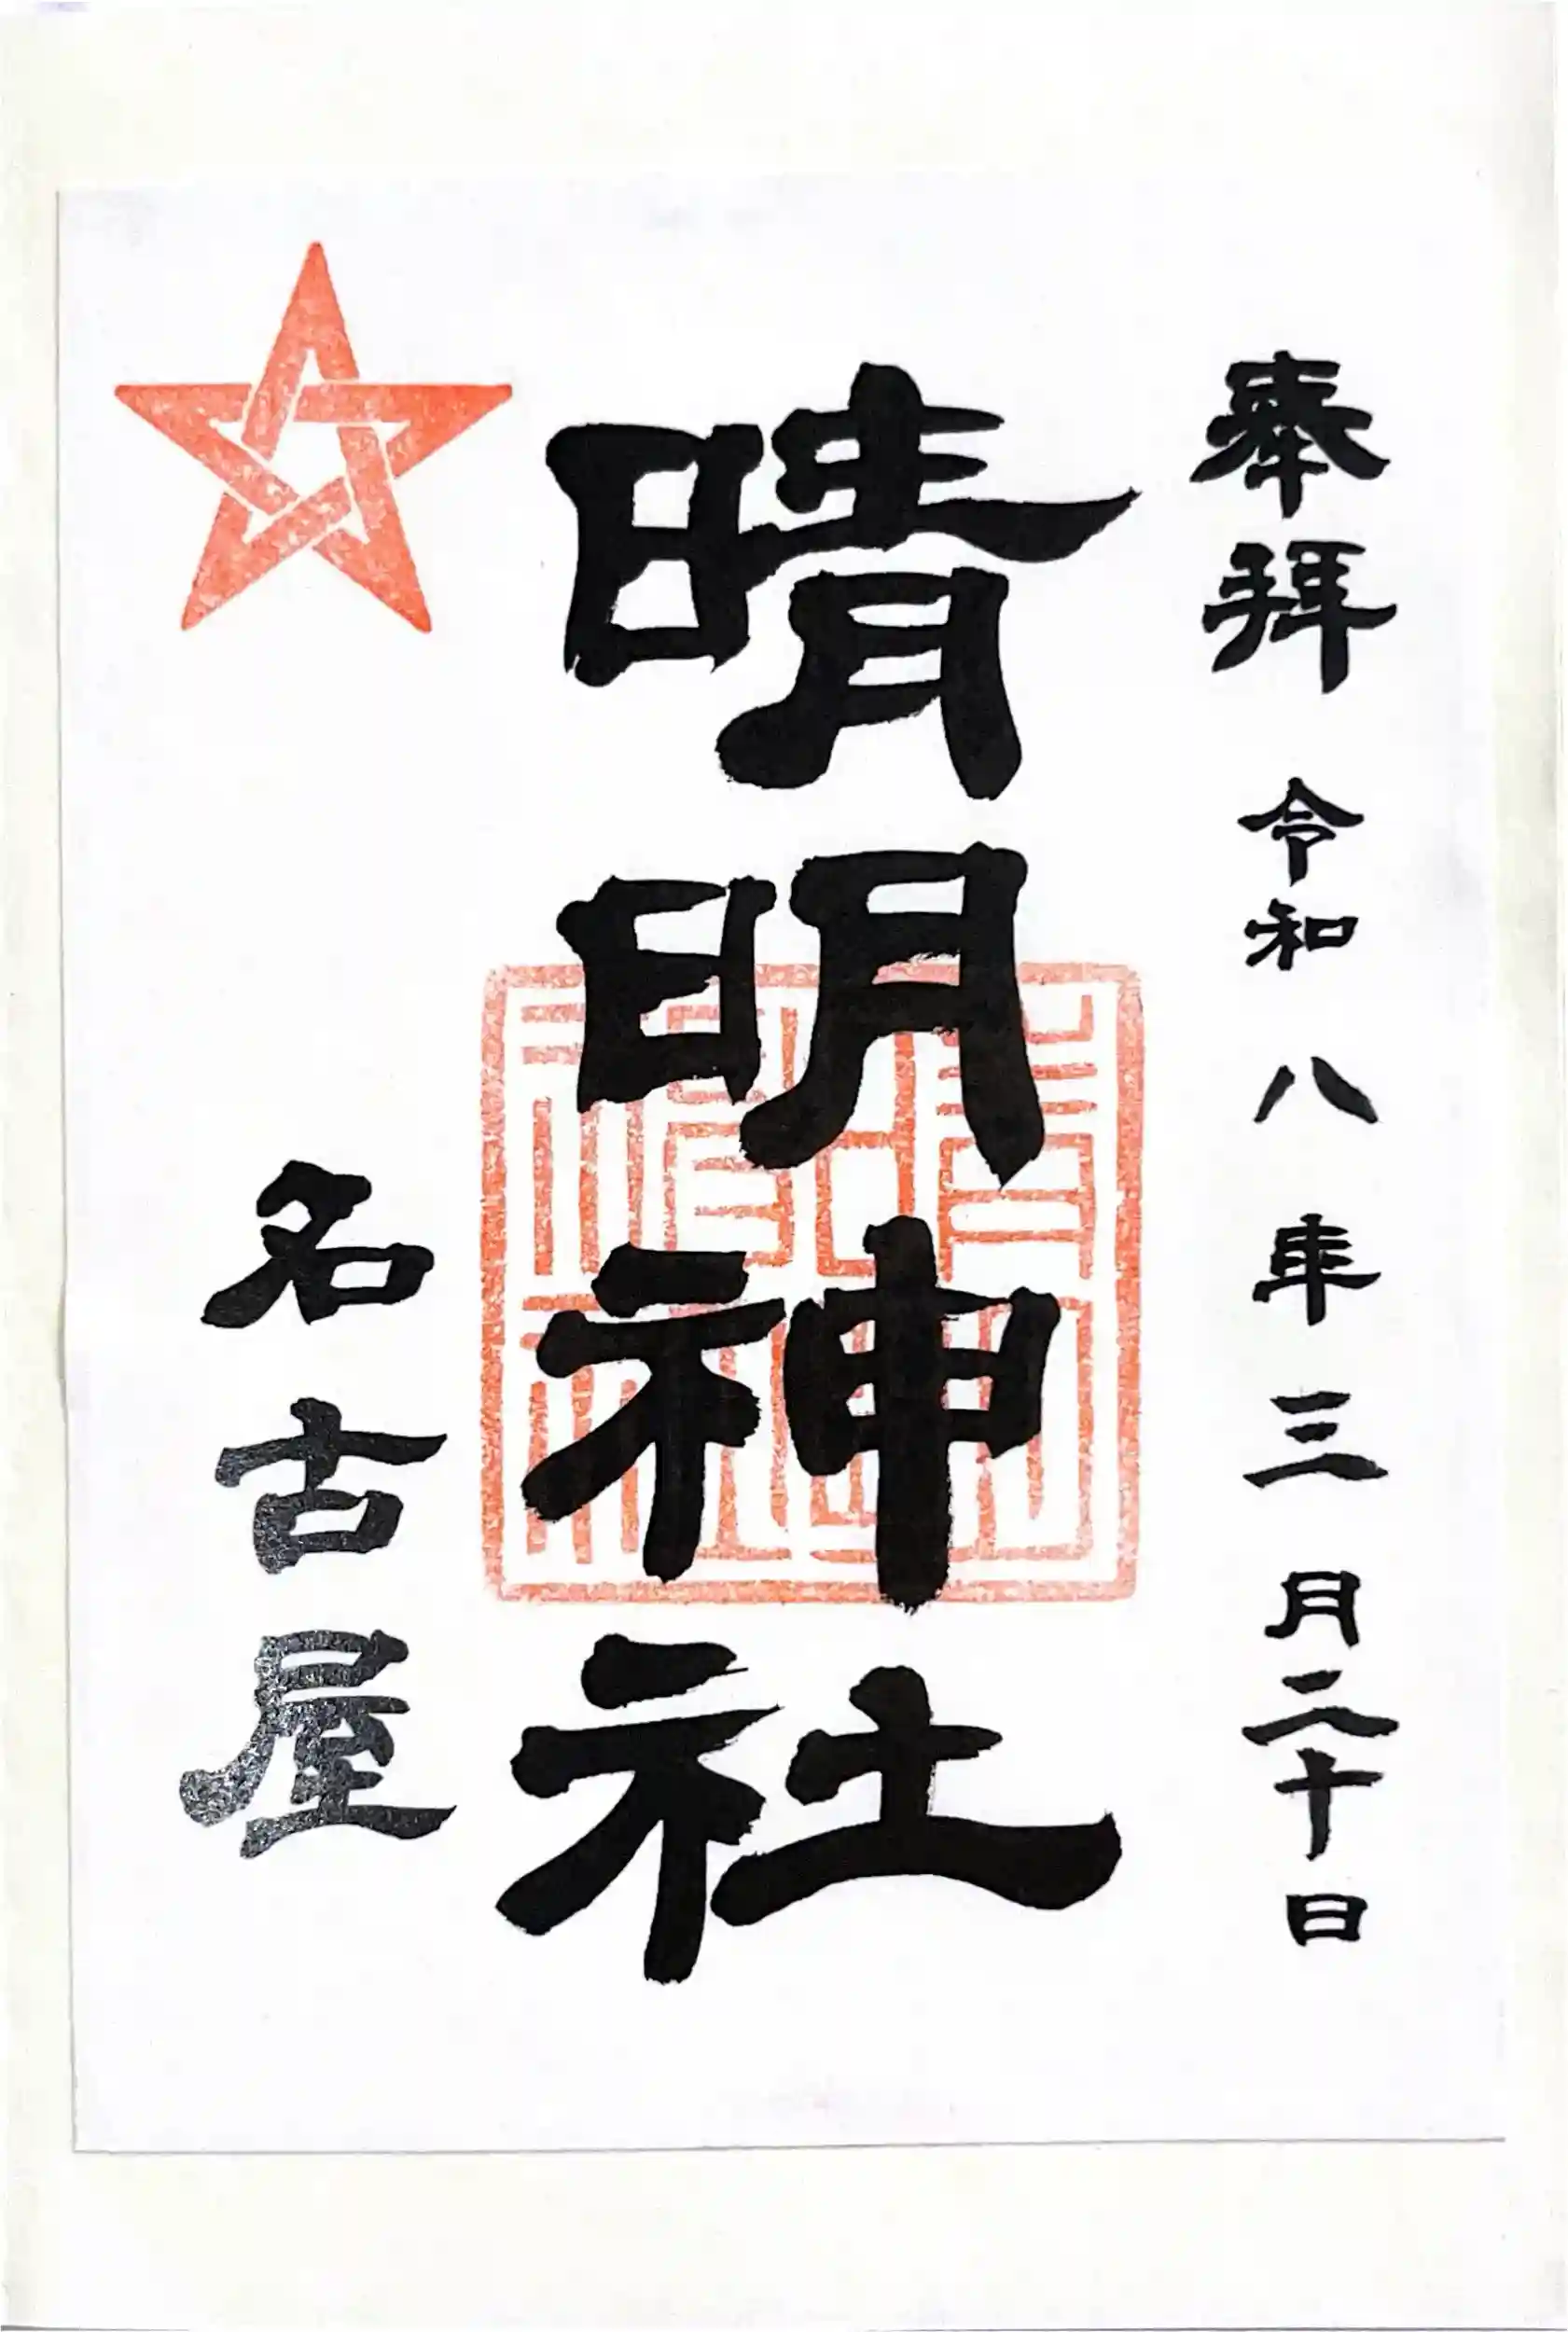 奉拝 令和八年三月二十日
晴明神社
名古屋